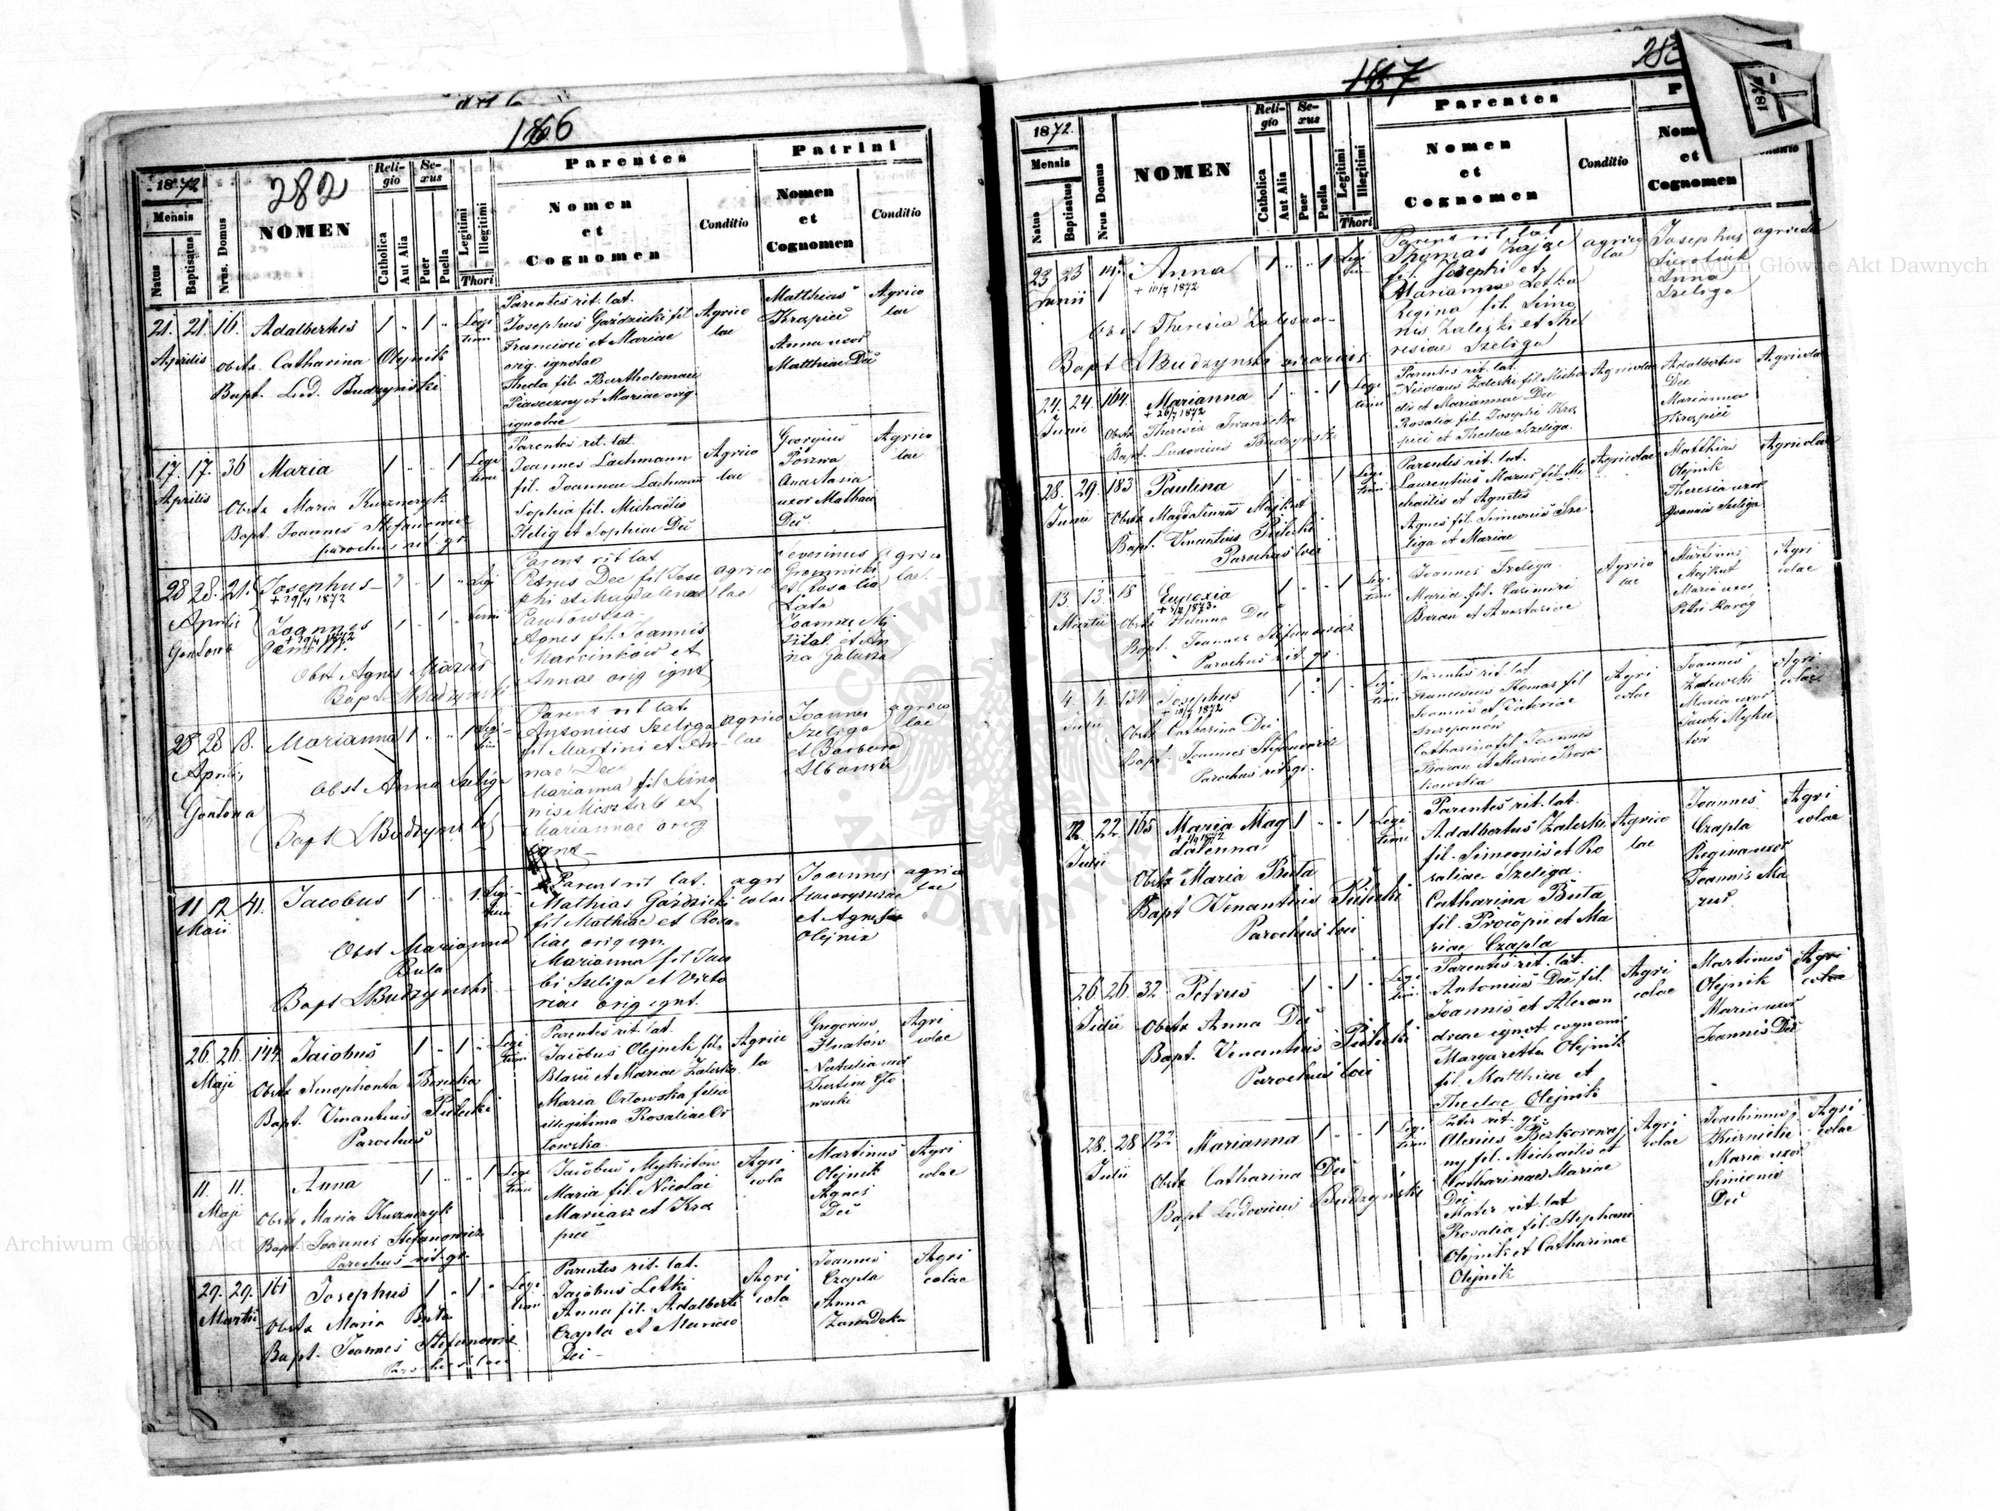 1866
1872
Mensis
Natus
Baptisatus
Nrus. Domus
282
NOMEN
Religio
Catholica
Aut Alia
Sexus
Puer
Puella
Legitimi
Illegitimi
Thori
Parentes
Nomen
et
Cognomen
Conditio
Patrini
Nomen
et
Cognomen
Conditio
21. 21. 16. Adalbertus 1 " 1 " Legi
timi
Aprilis
Obstx Catharina Olejnik
Bapt. Lud. Budzyński
Parentes rit. lat.
Josephus Gaździcki fil
Francisci et Mariae
orig. ignotae
Thecla fil. Bartholomaei
Piaseczny et Mariae orig
ignotae
Agrico
lae
Matthias
Krapiec
Anna uxor
Matthiae Dec
Agrico
lae
17. 17. 36 Maria 1 " " 1 Legi
timi
Aprilis
Obstx Maria Kuszneryk
Bapt. Joannes Stefanowicz
parochus rit. gr.
Parentes rit. lat.
Joannes Lachmann
fil. Joannae Lachman
Sophia fil. Michaelis
Helig et Sophiae Deć
Agrico
lae
Georgius
Poszwa
Anastasia
uxor Mathaei
Deć
Agrico
lae
28 28. 21. Josephus
+ 29/4 1872
Aprilis
Joannes
+ 29/4 1872
gemelli.
Gontowa
Obst Agnes Mazur
Bapt. LBudzynski
Parent rit lat
Petrus Dec fil Jose
phi et Magdalenae
Pawłowska
Agnes fil. Joannis
Marcinków et
Annae orig ignt
agrico
lae
Severinus
Gromnicki
et Rosalia
Łata
Joannes Mi
sztal et An
na Galuszka
agrico
lae.
28 28 18. Marianna 1 " " 1 Legi
timi
Aprilis
Gontowa
Obst Anna Szeliga
Bapt LBudzynski
Parent rit lat
Antonius Szeliga
fil Martini et An
nae Dec
Marianna fil Simo
nis Misztal et
Mariannae orig
ignt
agrico
lae
Joannes
Szeliga
et Barbara
Albańska
agrico
lae
11 12 41. Jacobus 1 " " 1 Legi
timi
Maii
Obst Marianna
Buta
Bapt LBudzynski
Parent rit lat.
Mathias Gaździcki
fil Mathiae et Rosa
liae orig ign.
Marianna fil Jaco
bi Szeliga et Victo
riae orig ignt.
agri
colae
Joannes
et Agnes
Olejnik
agrico
lae
26. 26. 144. Jacobus 1 " 1 " Legi
timi
Maji
Obstx Xenophonta Borucka
Bapt. Venantius Pilecki
Parochus
Parentes rit. lat.
Jacobus Olejnik fil.
Blasii et Mariae Zaleska
Maria Orłowska filia
illegitima Rosaliae Or
łowska.
Agrico
la
Gregorius
Ihnatów
Natalia uxor
Justini Gło
wacki
Agri
colae
11. 11. Anna 1 " " 1 Legi
timi
Maji
Obstx Maria Kuszneryk
Bapt. Joannes Stefanowicz
Parochus rit. gr.
Jacobus Mykitow
Maria fil. Nicolai
Maruasz et Kra
piec
Agri
cola
Martinus
Olejnik
Agnes
Deć
Agri
colae
29. 29. 161 Josephus 1 " 1 " Legi
timi
Martii
Obstx Maria Buta
Bapt. Joannes Stefanowicz
Parochus loci
Parentes rit. lat.
Jacobus Letki
Anna fil. Adalberti
Czapla et Mariae
Deć
Agri
cola
Joannes
Czapla
Anna
Zawadzka
Agri
colae
1867
1872.
Mensis
Natus
Baptisatus
Nrus. Domus
NOMEN
Religio
Catholica
Aut Alia
Sexus
Puer
Puella
Legitimi
Illegitimi
Thori
Parentes
Nomen
et
Cognomen
Conditio
Nomen
et
Cognomen
Conditio
23 23 147 Anna 1 " " 1 Legi
timi
Junii
Obst Theresia Zaleska
Bapt LBudzynski vicarius
Parent rit lat
Thomas Zając
fil Josephi et
Mariannae Letka
Regina fil. Simo
nis Zaleski et The
resiae Szeliga
agrico
lae
Josephus
Anna
Szeliga
agricolae
24. 24. 164. Marianna 1 " " 1 Legi
timi
+ 26/7 1872
Junii
Obstx Theresia Iwanicka
Bapt. Ludovicus Budzynski
Parentes rit. lat.
Nicolaus Zaleski fil. Micha
elis et Mariannae Deć
Rosalia fil. Josephi Kra
piec et Theclae Szeliga.
Agricolae
Adalbertus
Dec
Marianna
Krapiec
Agricolae
28. 29. 183 Paulina 1 " 1 Legi
timi
Junii
Obstx Magdalenna Majkut
Bapt. Venantius Pilecki
Parochus loci
Parentes rit. lat.
Laurentius Mazur fil. Mi
chaelis et Agnetis
Agnes fil. Simeonis Sze
liga et Mariae
Agricolae
Matthias
Olejnik
Theresia uxor
Joannis Szeliga
Agricolae
13. 13. 18 Eudoxia 1 " 1 Legi
timi
Martii
Obstx Helenna Dec
Bapt. Joannes Stefanowicz
Parochus rit. gr.
Joannes Szeliga
Maria fil. Casimiri
Baran et Anastasiae
Agrico
lae
Martinus
Majkut
Maria uxor
Petri Raróg
Agri
colae
4. 4. 134 Josephus 1 " 1 " Legi
timi
Julii
Obstx Catharina Deć
Bapt. Joannes Stefanowicz
Parochus rit. gr.
Parentes rit. lat.
Franciscus Homas fil
Joannis et Victoriae
Szczepanów
Catharina fil. Joannis
Baran et Mariae Bosa
kowska
Agri
colae
Joannes
Zalewski
Maria uxor
Jacobi Myki
tów
Agri
colae
22. 22. 165 Maria Mag
dalenna 1 " " 1 Legi
timi
Julii
Obstx Maria Buta
Bapt Venantius Pilecki
Parochus loci
Parentes rit. lat.
Adalbertus Zaleski
fil. Simeonis et Ro
saliae Szeliga.
Catharina Buta
fil. Procopii et Ma
riae Czapla
Agrico
lae
Joannes
Czapla
Regina uxor
Joannis Ma
zur
Agri
colae
26. 26. 32. Petrus 1 " 1 " Legi
timi
Julii
Obstx Anna Deć
Bapt. Venantius Pilecki
Parochus loci
Parentes rit. lat.
Antonius Deć fil.
Joannis et Alexan
drae ignot. cognomi
Margaretta Olejnik
fil. Matthiae et
Theclae Olejnik
Agri
colae
Martinus
Olejnik
Maria uxor
Joannis Deć
Agri
colae
28. 28 122 Marianna 1 " " 1 Legi
timi
Julii
Obstx Catharina Deć
Bapt Ludovicus Budzyński
Pater rit. gr.
Alexius Bezkorowaj
ny fil. Michaelis et
Catharinae Mariae
Deć
Mater rit. lat
Rosalia fil. Stephani
Olejnik et Catharinae
Olejnik
Agri
colae
Joachimus
Maria uxor
Simeonis
Deć
Agri
colae
Archiwum Główne Akt Dawnych
Archiwum Główne Akt Dawnych